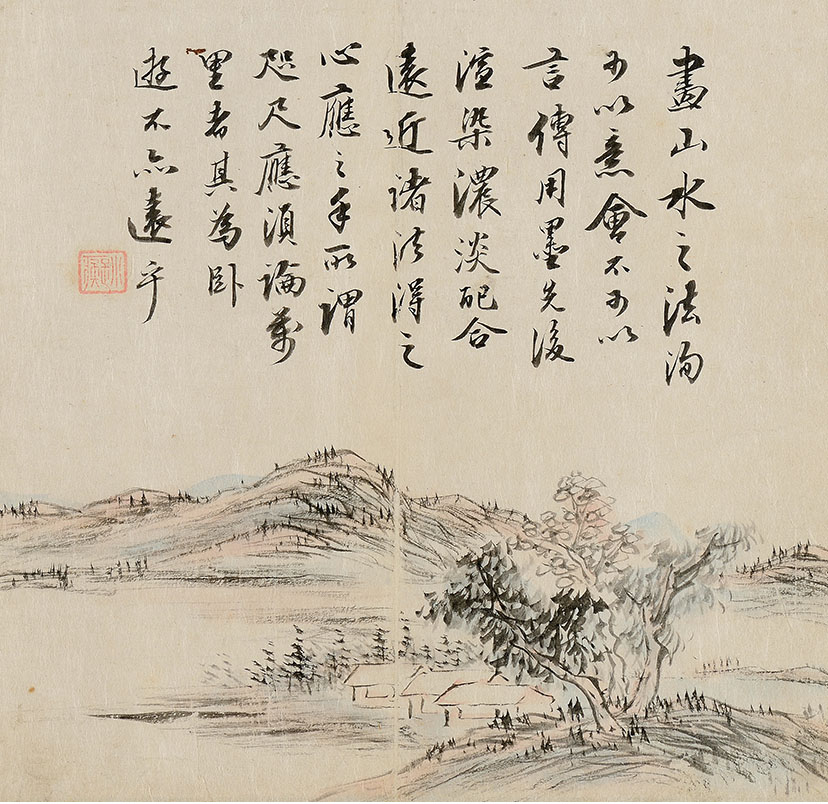 畫山水之法洵
可以意會不可以
言傳用墨先後
渲染濃淡配合
遠近諸法得之
心應之手所謂
咫尺應須論萬
里者其為卧
遊不亦遠乎